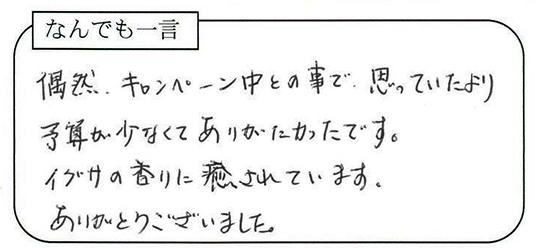 なんでも一言
偶然、キャンペーン中との事で、思っていたより
予算が少なくてありがたかったです。
イグサの香りに癒されています。
ありがとうございました。